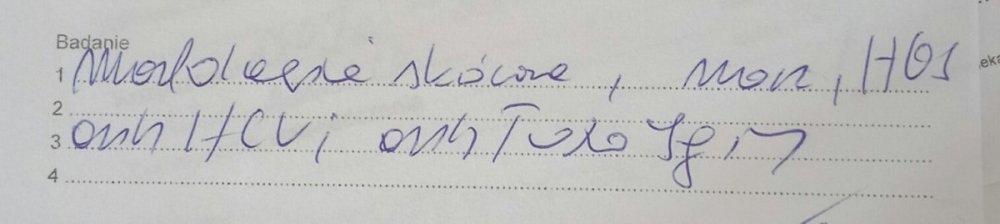 Badanie
1 Morfologia skrócona, mocz, HBs
2
3 anty HCV, anty Toxo IgM
4